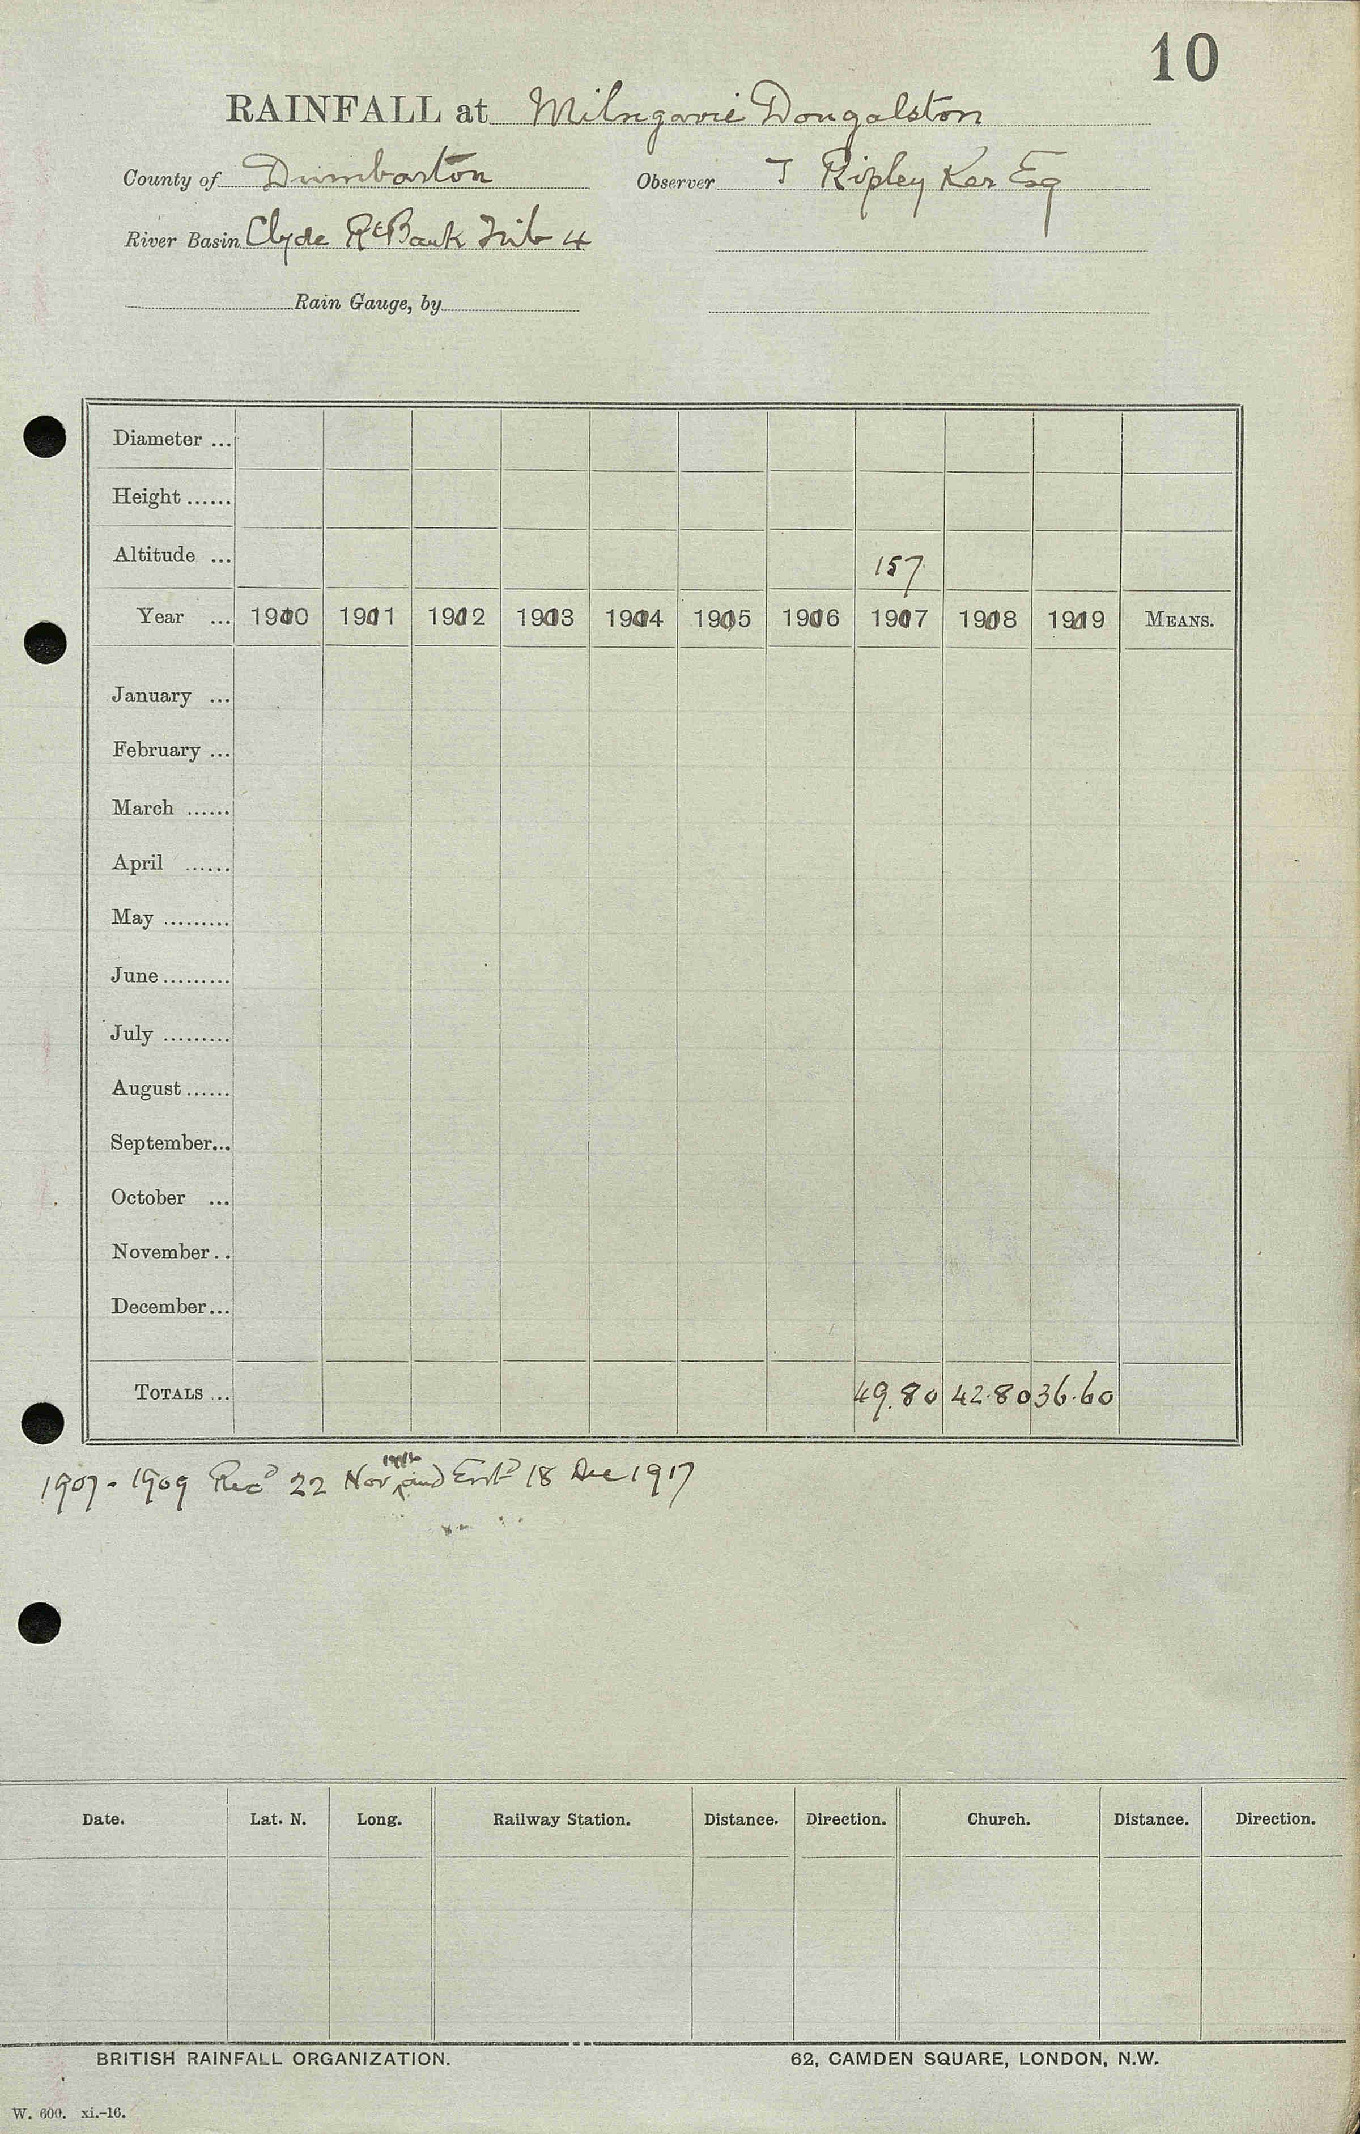 10
RAINFALL at Milngavie Dougalston
County of Dumbarton Observer T Ripley Ker Esq
River Basin Clyde Rt Bank Trib 4
Rain Gauge, by
Diameter ...
Height ......
Altitude ... 157
Year ... 1900 1901 1902 1903 1904 1905 1906 1907 1908 1909 MEANS.
January ...
February ...
March ......
April ......
May .........
June .........
July .........
August ......
September...
October ...
November..
December...
TOTALS ... 49.80 42.80 36.60
1907-1909 Recd 22 Nov and Entd 18 Dec 1917
Date. Lat. N. Long. Railway Station. Distance. Direction. Church. Distance. Direction.
BRITISH RAINFALL ORGANIZATION. 62, CAMDEN SQUARE, LONDON, N.W.
W. 600. xi.-16.